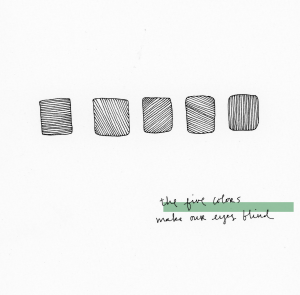 the five colors
make our eyes blind